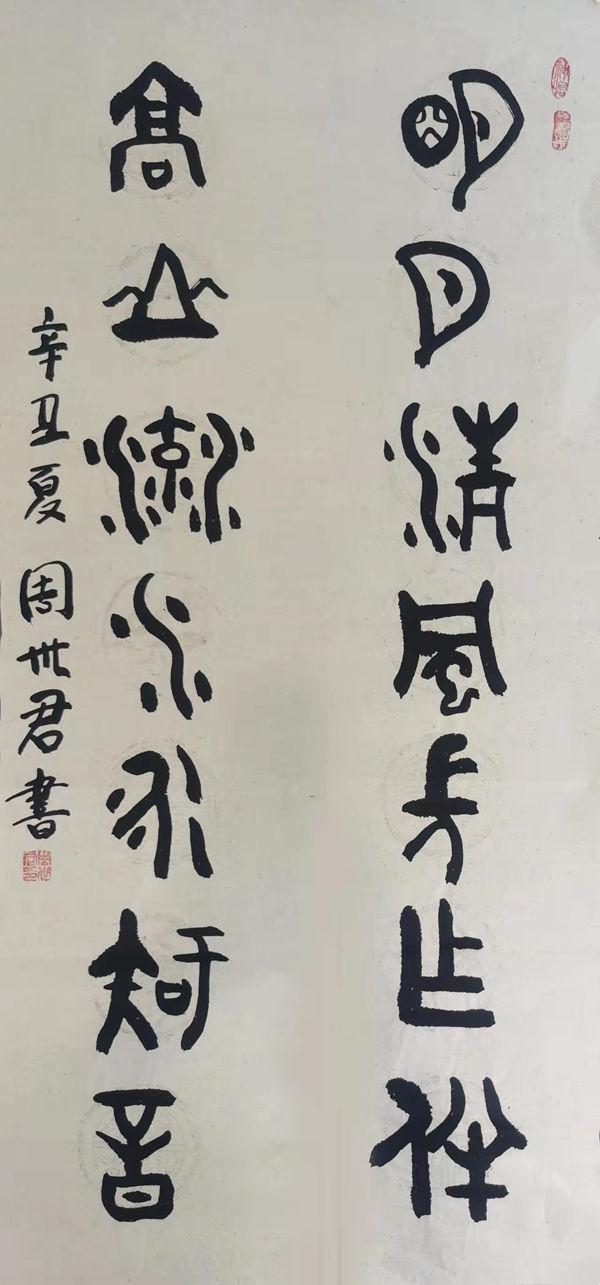 明月清風長作伴
高山流水永知音
辛丑夏 周世君書